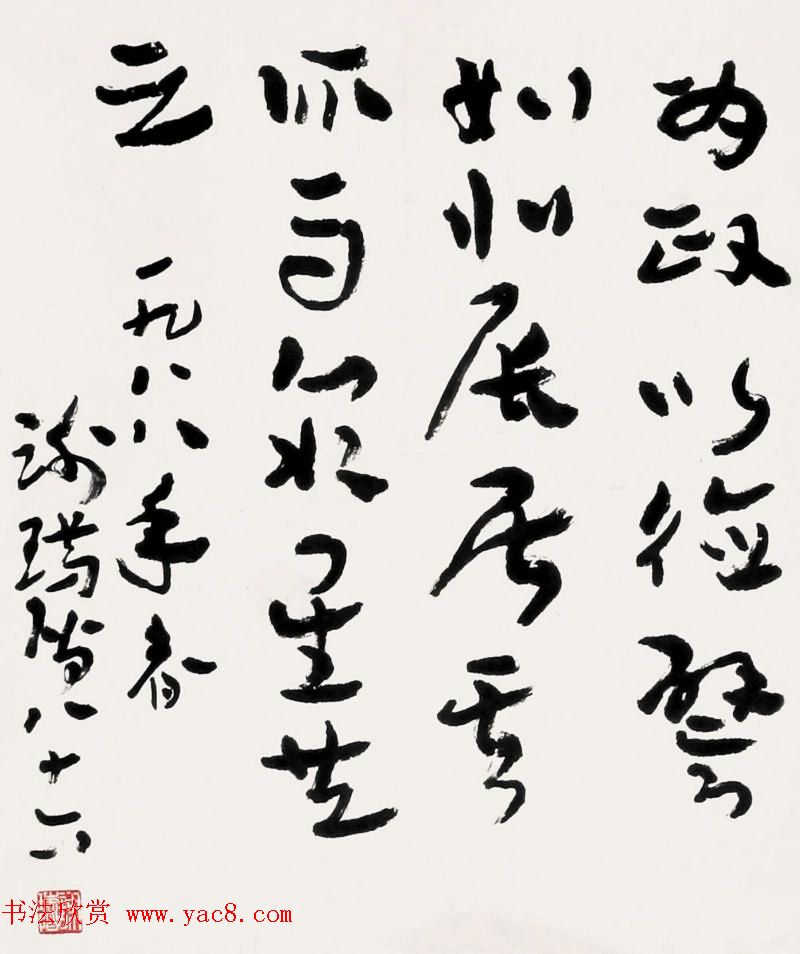 为政以德譬
如北辰居其
所而众星共
之 一九八八年春
谢瑞阶八十六
书法欣赏 www.yac8.com